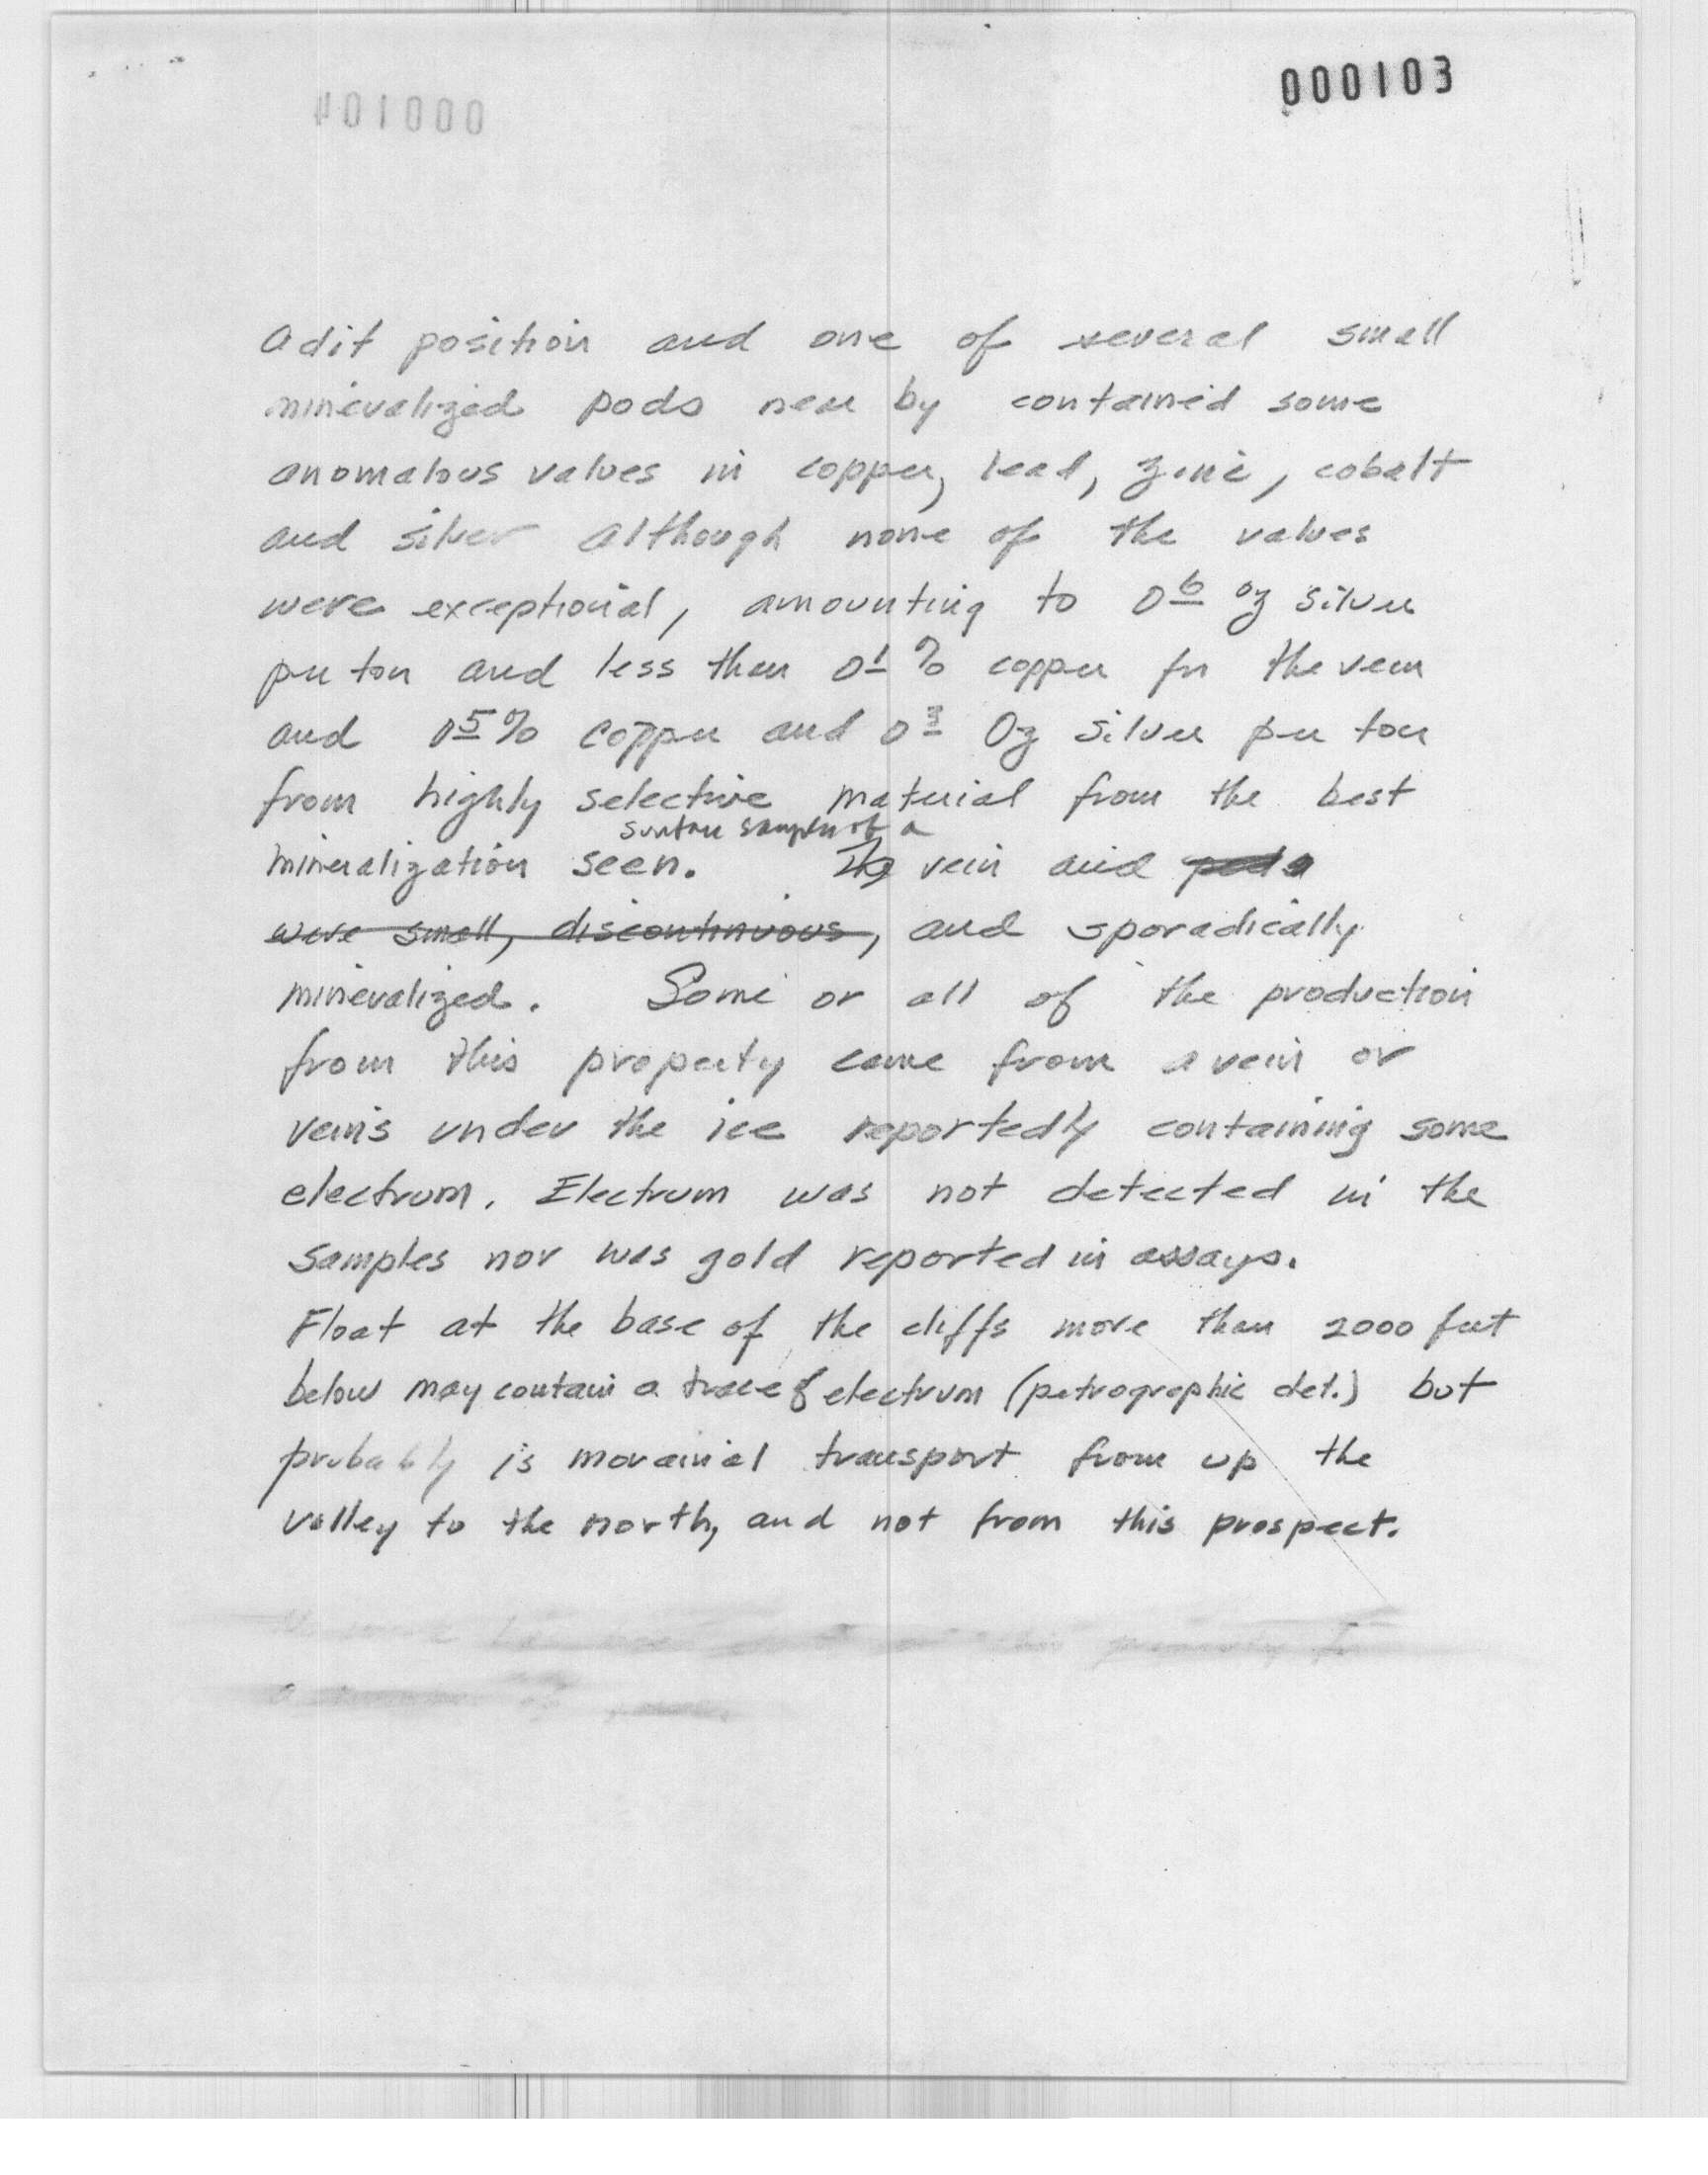 000103
adit position and one of several small
mineralized pods near by contained some
anomalous values in copper, lead, zinc, cobalt
and silver although none of the values
were exceptional, amounting to 0.6 oz silver
per ton and less than 0.1 % copper for the vein
and 0.5 % copper and 0.3 Oz silver per ton
from highly selective material from the best
surface samples of a
mineralization seen. The vein and pods
were small, discontinuous, and sporadically
mineralized. Some or all of the production
from this property came from a vein or
veins under the ice reportedly containing some
electrum. Electrum was not detected in the
samples nor was gold reported in assays.
Float at the base of the cliffs more than 2000 feet
below may contain a trace of electrum (petrographic det.) but
probably is morainial transport from up the
valley to the north, and not from this prospect.